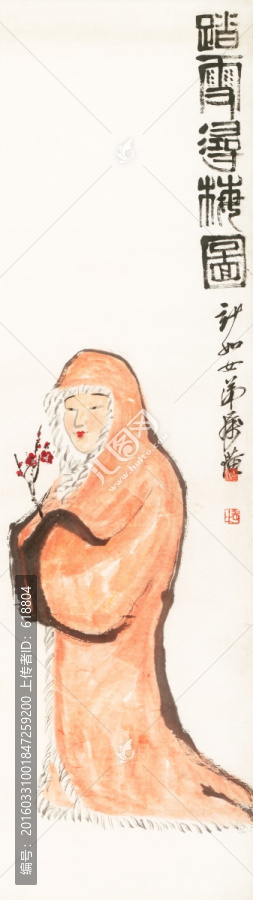 踏雪尋梅圖
計如女弟屬 璜
编号：20160331001847259200 上传者ID：618804